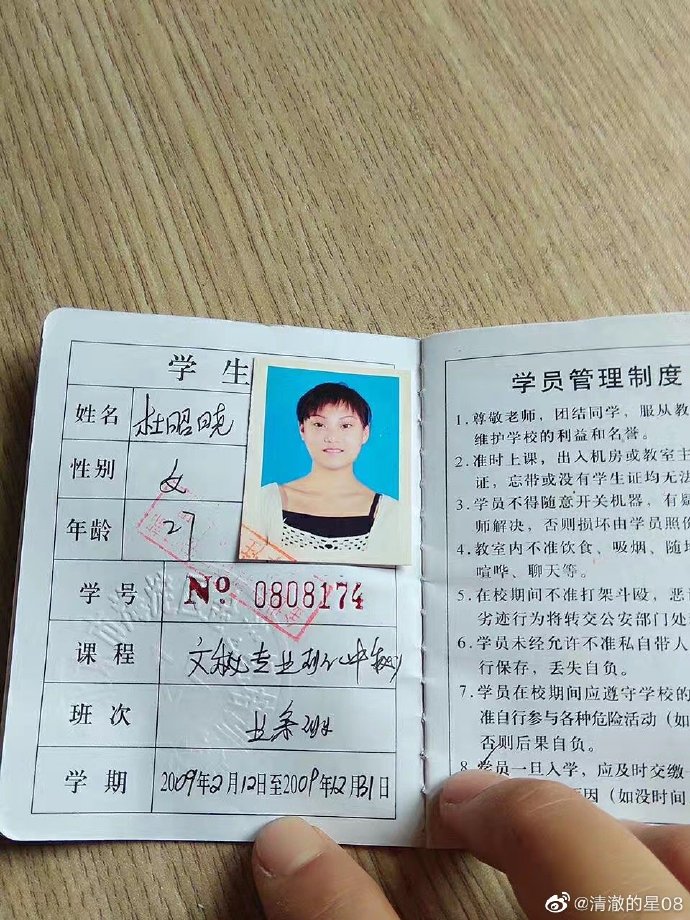 学生
姓名 杜昭晓
性别 女
年龄 27
学号 No 0808174
课程 文秘专业
班次 业余班
学期 2009年2月12日至2009年12月31日
学员管理制度
1.尊敬老师，团结同学，服从教
维护学校的利益和名誉。
2.准时上课，出入机房或教室主
证，忘带或没有学生证均无法
3.学员不得随意开关机器，有疑
师解决，否则损坏由学员照价
4.教室内不准饮食、吸烟、随地
喧哗、聊天等。
5.在校期间不准打架斗殴，恶
劣迹行为将转交公安部门处
6.学员未经允许不准私自带人
行保存，丢失自负。
7.学员在校期间应遵守学校的
准自行参与各种危险活动（如
否则后果自负。
8.学员一旦入学，应及时交缴
因（如没时间
@清澈的星08